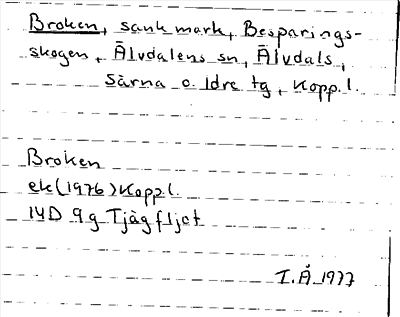 Broken, sank mark, Besparings-
skogen, Älvdalens sn, Älvdals,
Särna o Idre tg, Kopp. l.
Broken
ek (1976) Kopp l.
14D 9g Tjågfljot
I. Å 1977